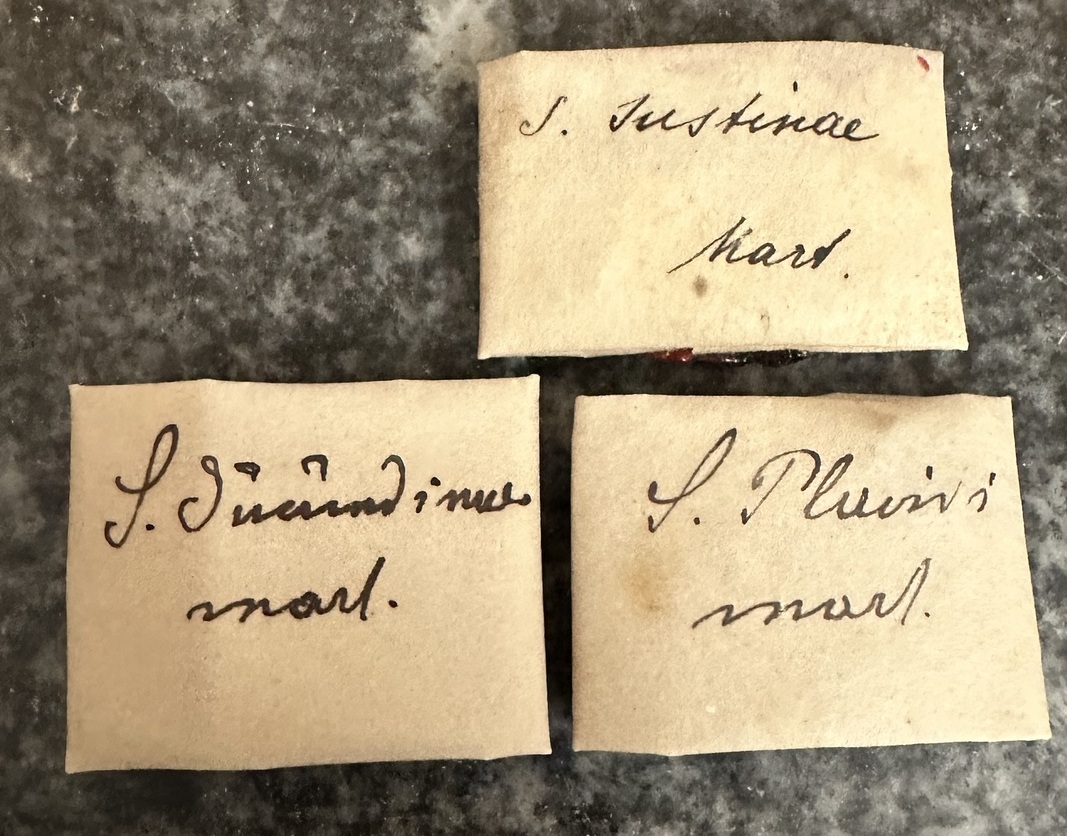 S. Justinae
Mart.
S. Jucundinae
mart.
S. Placidi
mart.